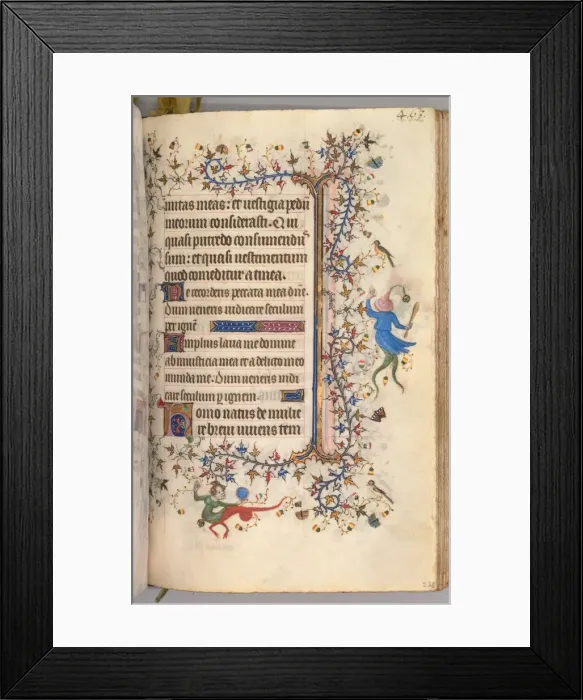 467
mitas meas: et uestigia pedū
meorum considerasti. Qui
quasi putredo consumendꝰ
sum: et quasi uestimentum
quod comeditur a tinea.
Ne recorderis peccata mea dñe.
Dum veneris iudicare seculum
per ignē
Amplius laua me domine
ab iniusticia mea et a delicto meo
munda me. Dum veneris iudi
care seculum p ignem.
Domo natus de mulie
re breui viuens tem